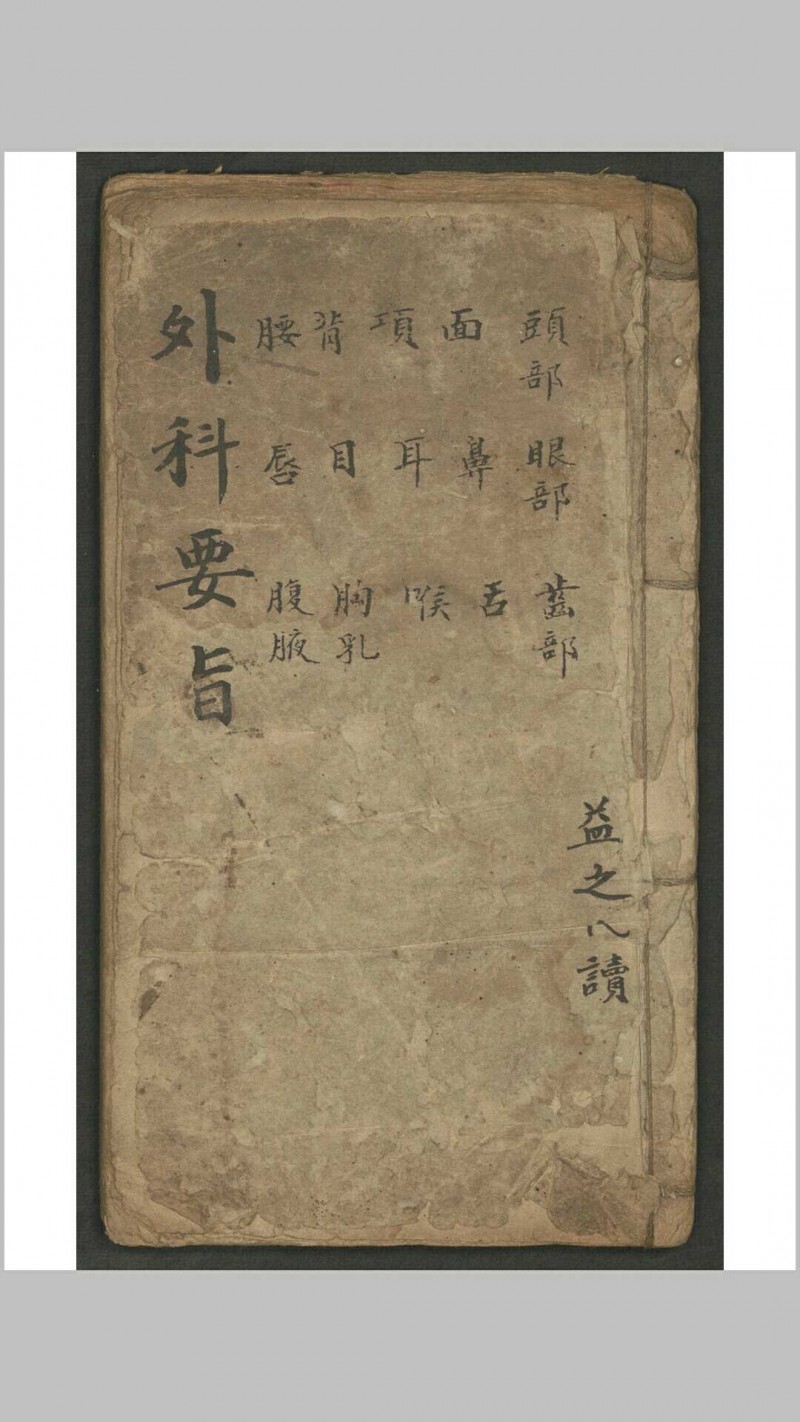 頭部 眼部 齒部
面 鼻 舌
項 耳 喉
背 目 胸乳
腰 唇 腹腋
外科要旨
益之八讀